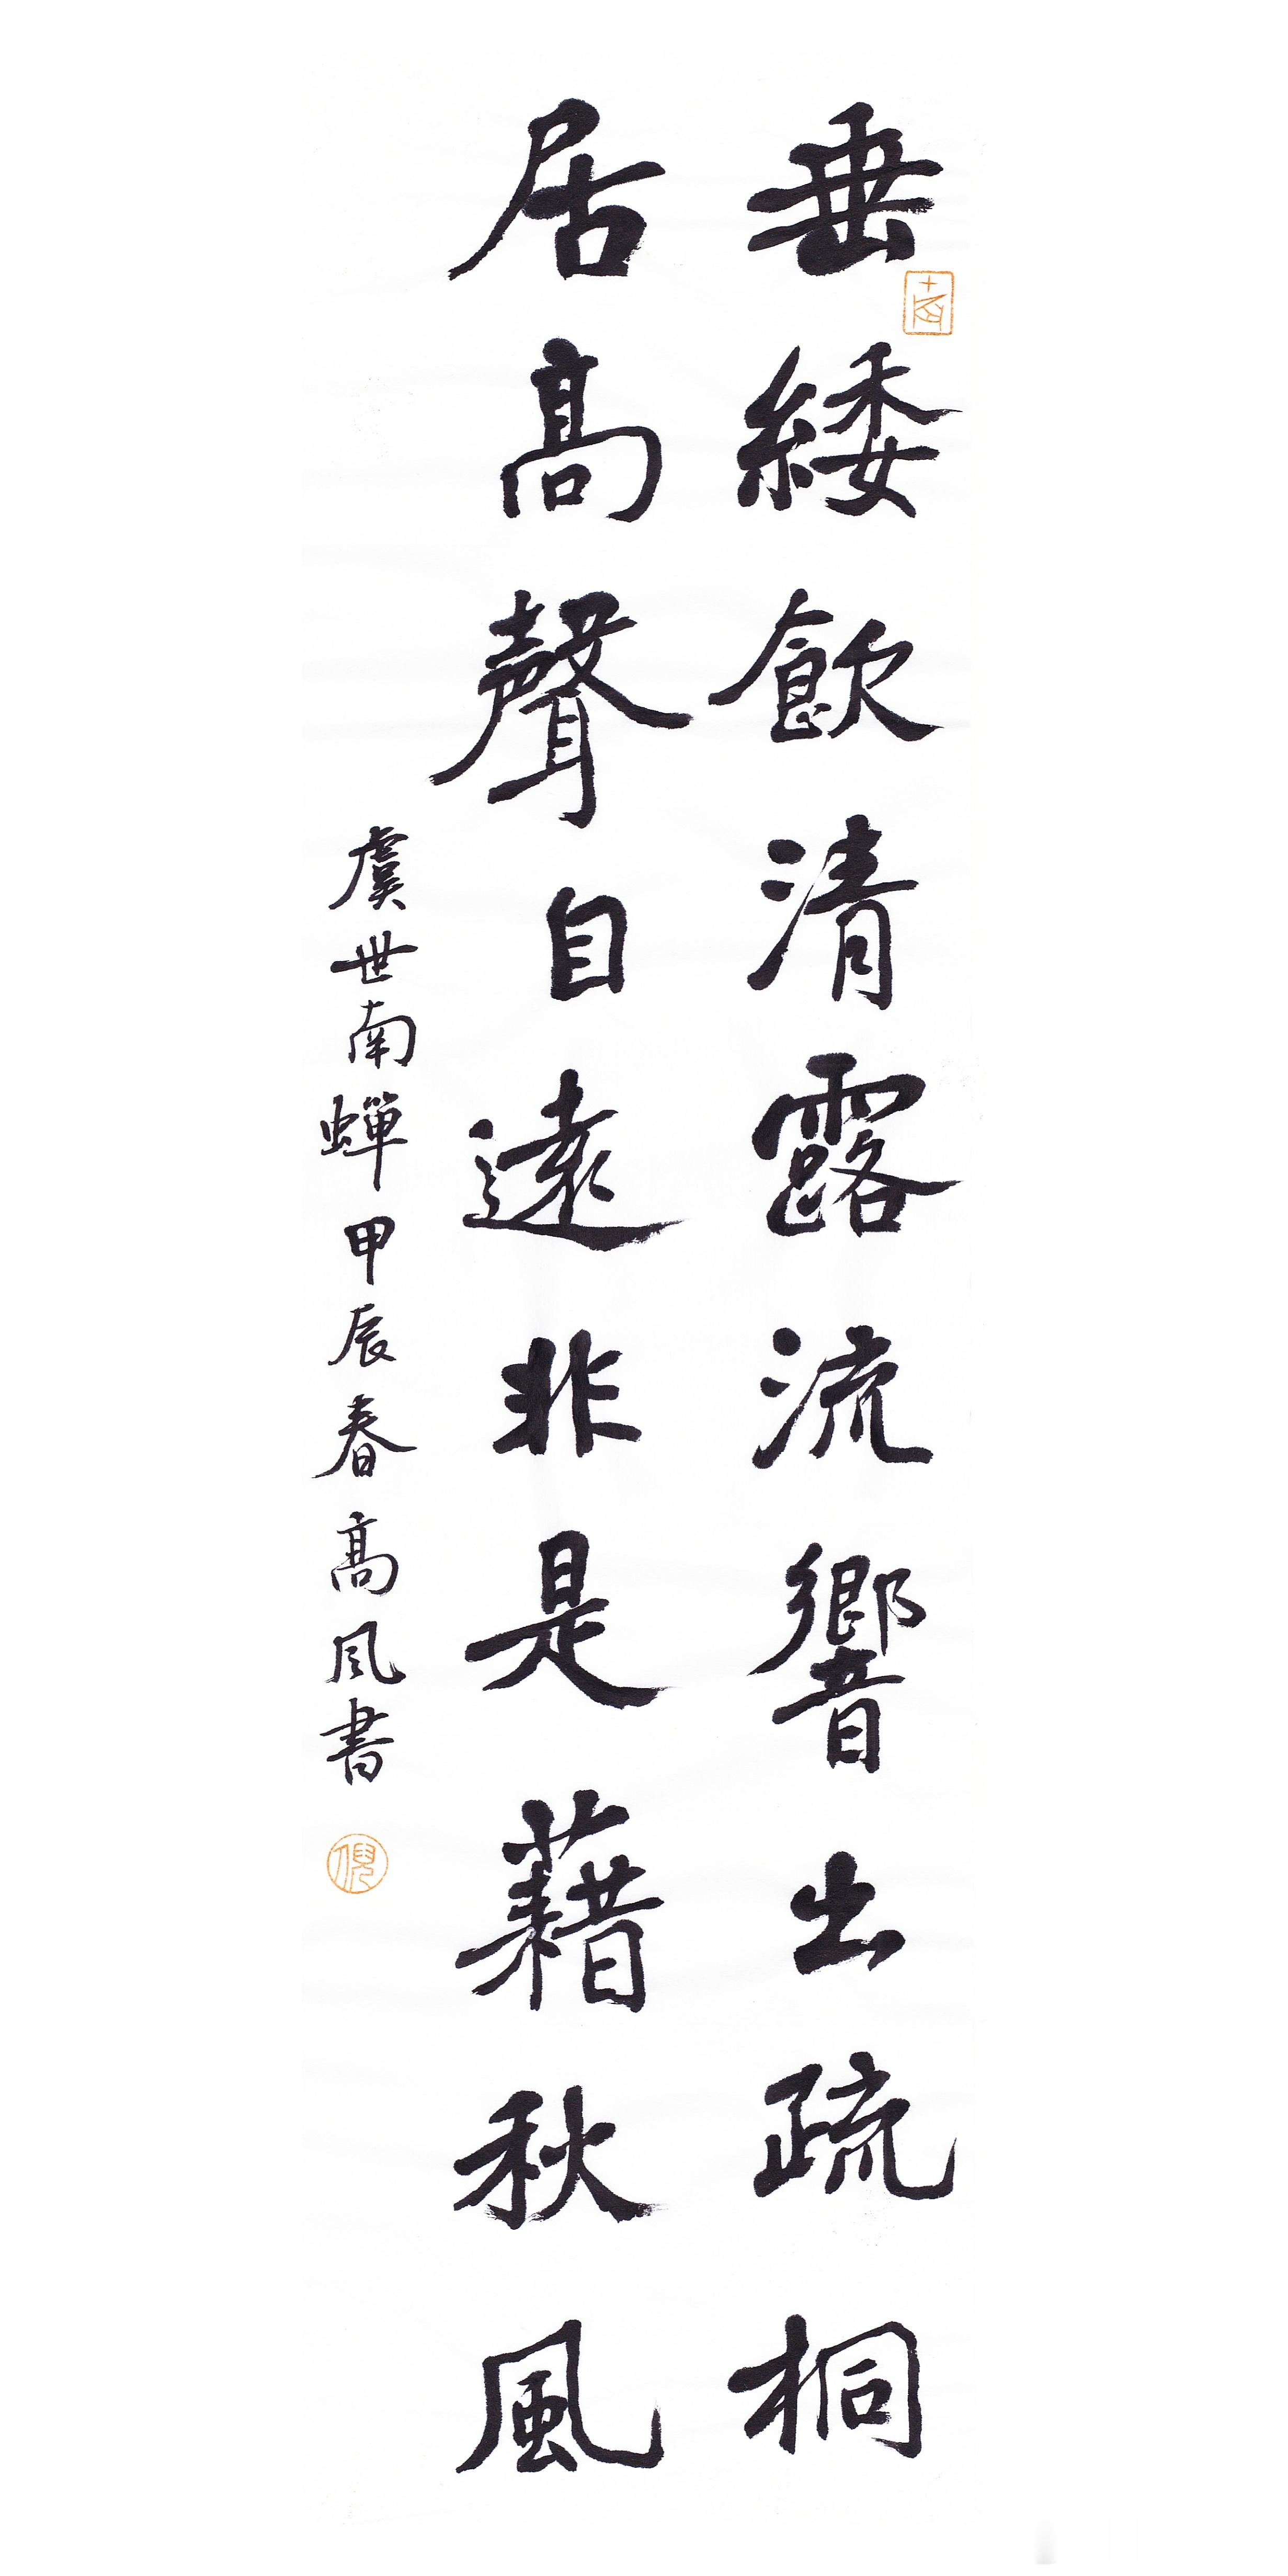 垂緌飲清露流響出疏桐
居高聲自遠非是藉秋風
虞世南蟬甲辰春高風書
倪